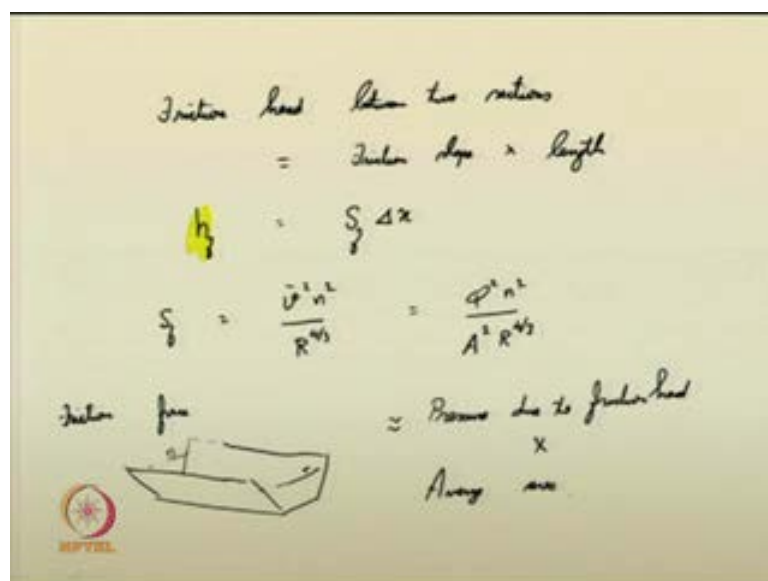 Friction head between two sections
= Friction slope × length
h_f = S_f Δx
S_f = v̄² n² / R^4/3 = Q² n² / A² R^4/3
Friction force ≈ Pressure due to friction head
×
Average area
NPTEL